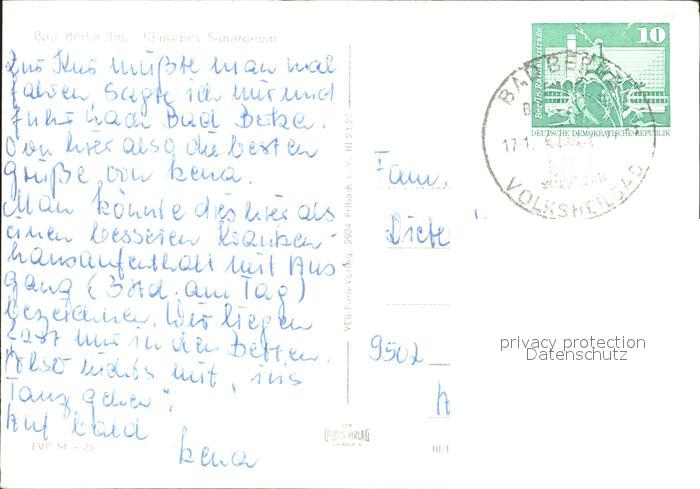 Bad Berka Ilm. Klinisches Sanatorium
Zur Kur müßte man mal
fahren sagte ich mir und
fuhr nach Bad Berka.
Von hier also die besten
Grüße von Lena.
Man könnte dies hier als
einen besseren Kranken-
hausaufenthalt mit Aus-
gang (3 Std. am Tag)
bezeichnen. Wir liegen
fast nur in den Betten.
Also nichts mit "ins
Tanz gehen".
Auf bald
Lena
EVP M -,25
VEB Foto-Verlag, 9934 Erlbach i. V.
VERLAG
III/1
10
Berlin Rathausstraße
DEUTSCHE DEMOKRATISCHE REPUBLIK
BAD BERKA
17.1.
VOLKSHEILBAD
Fam.
Diete
9502
privacy protection
Datenschutz